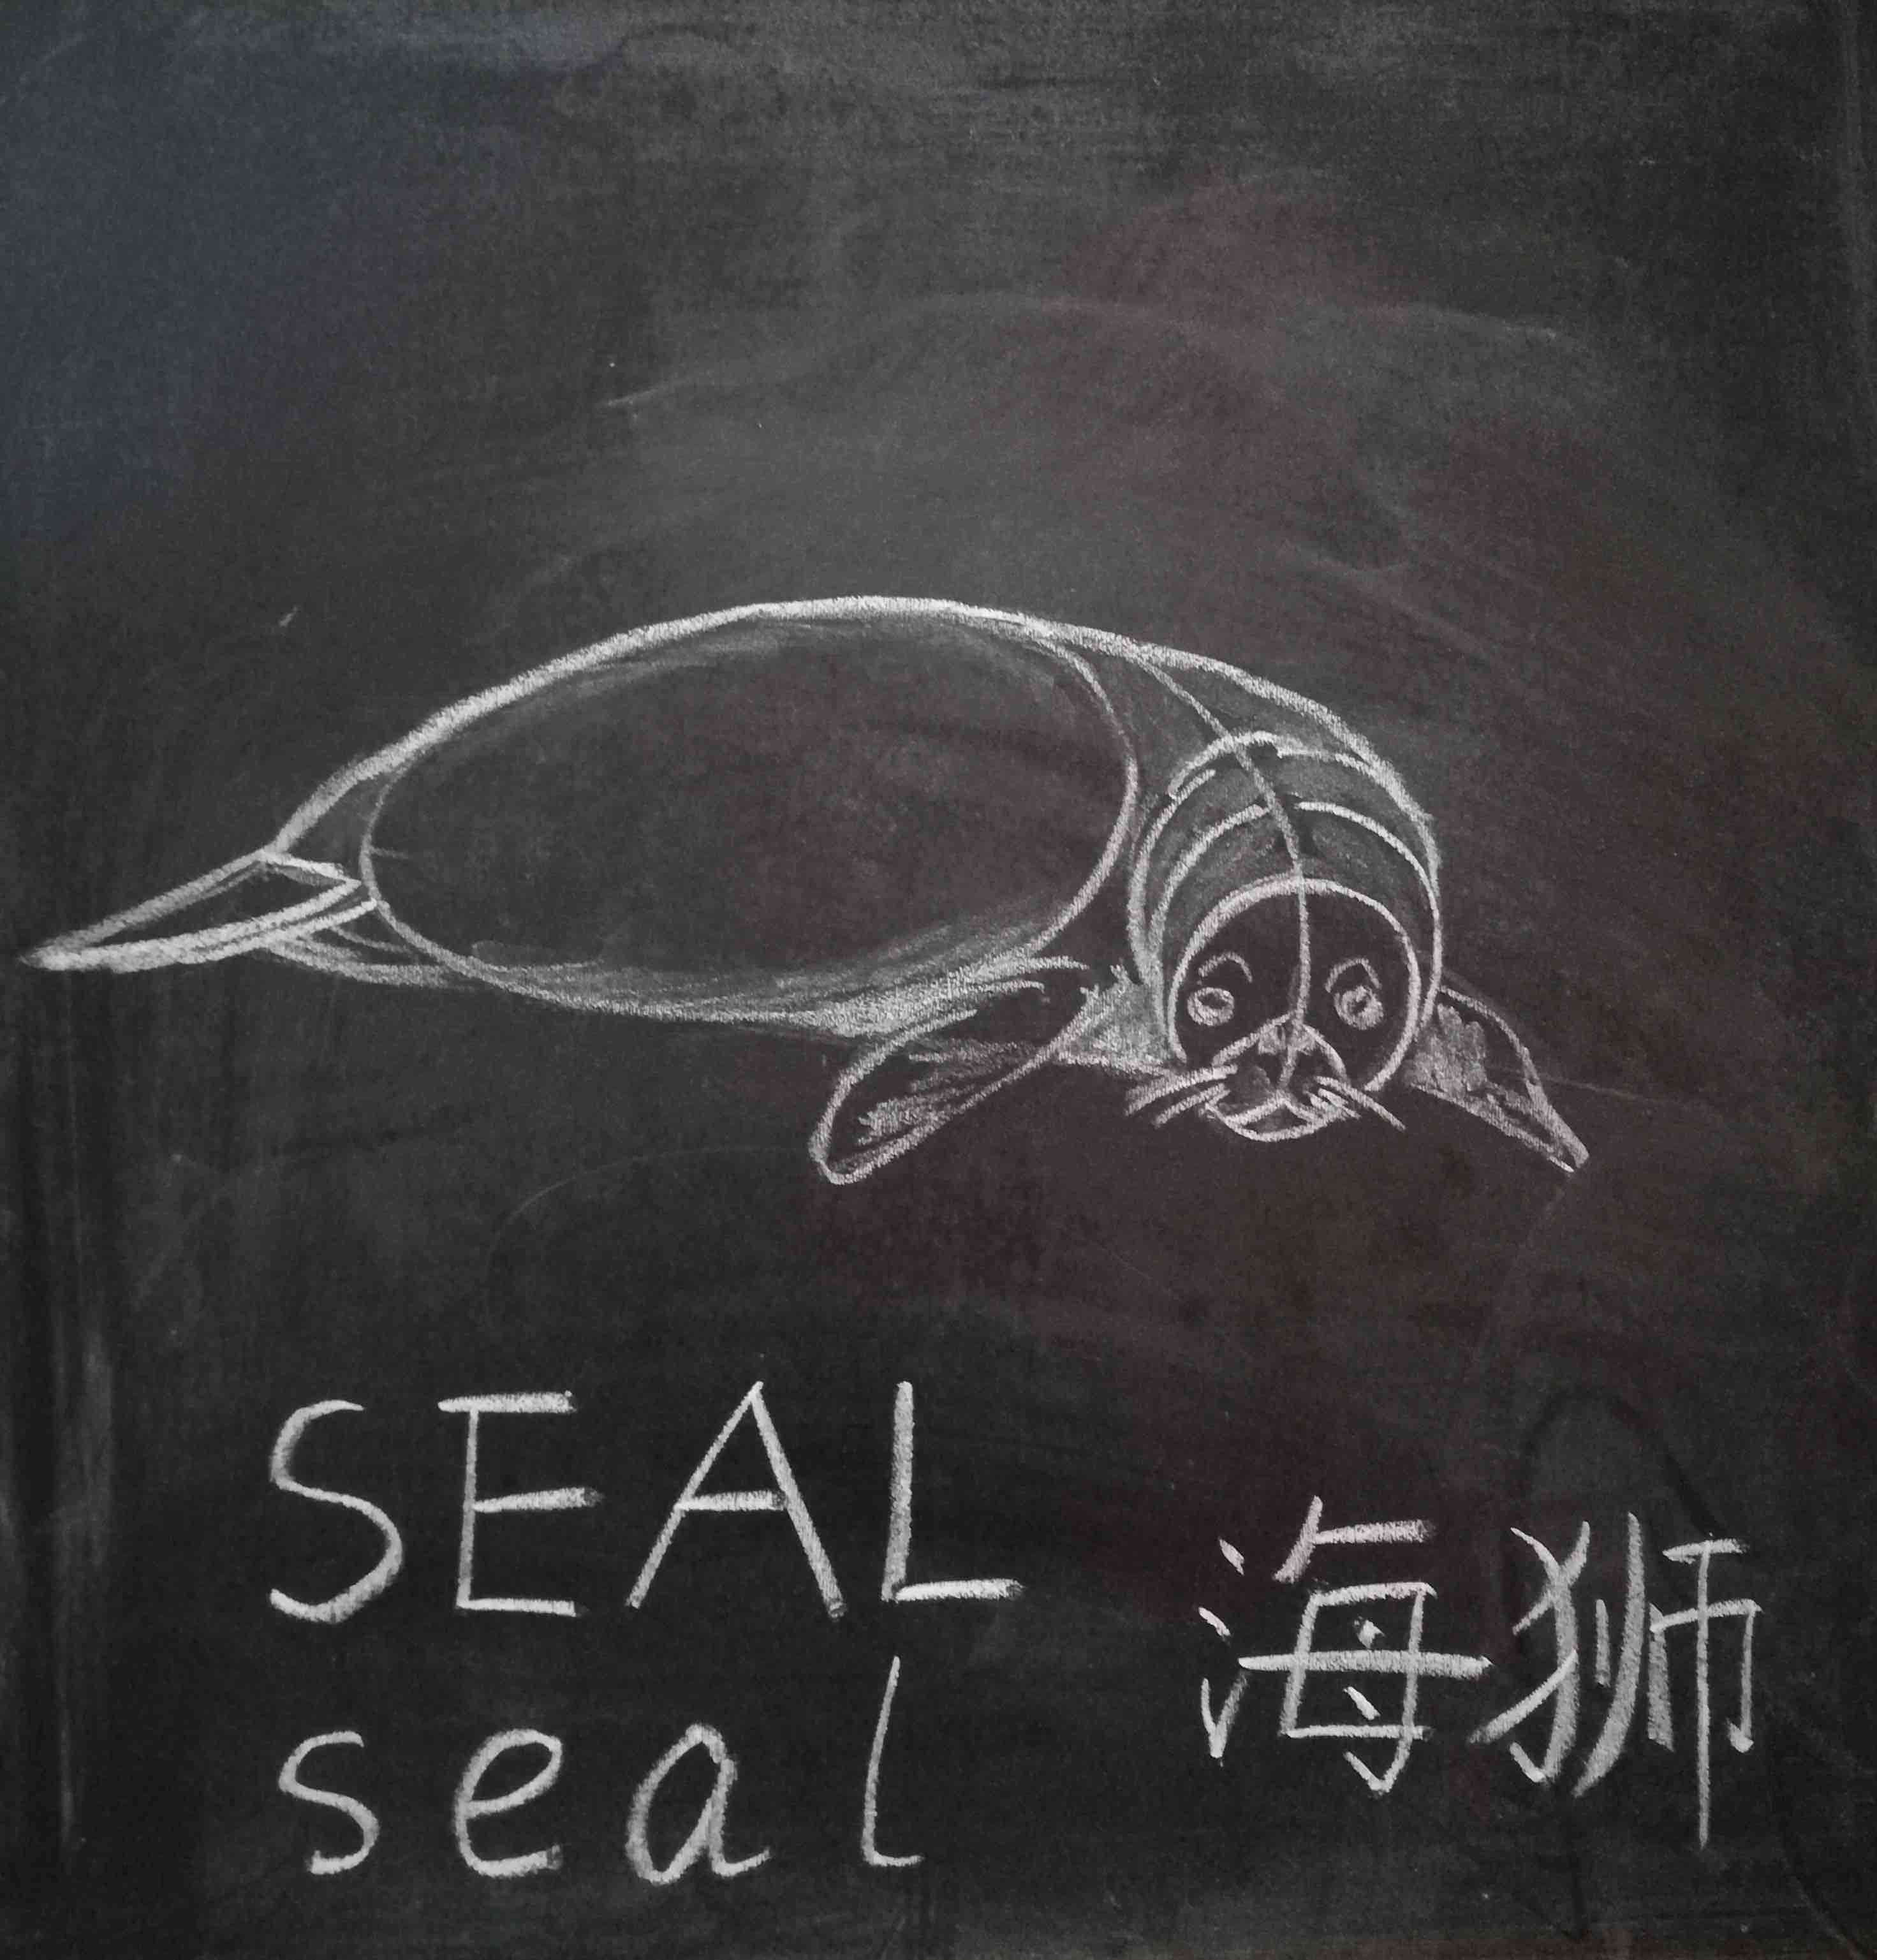 SEAL
seal
海狮